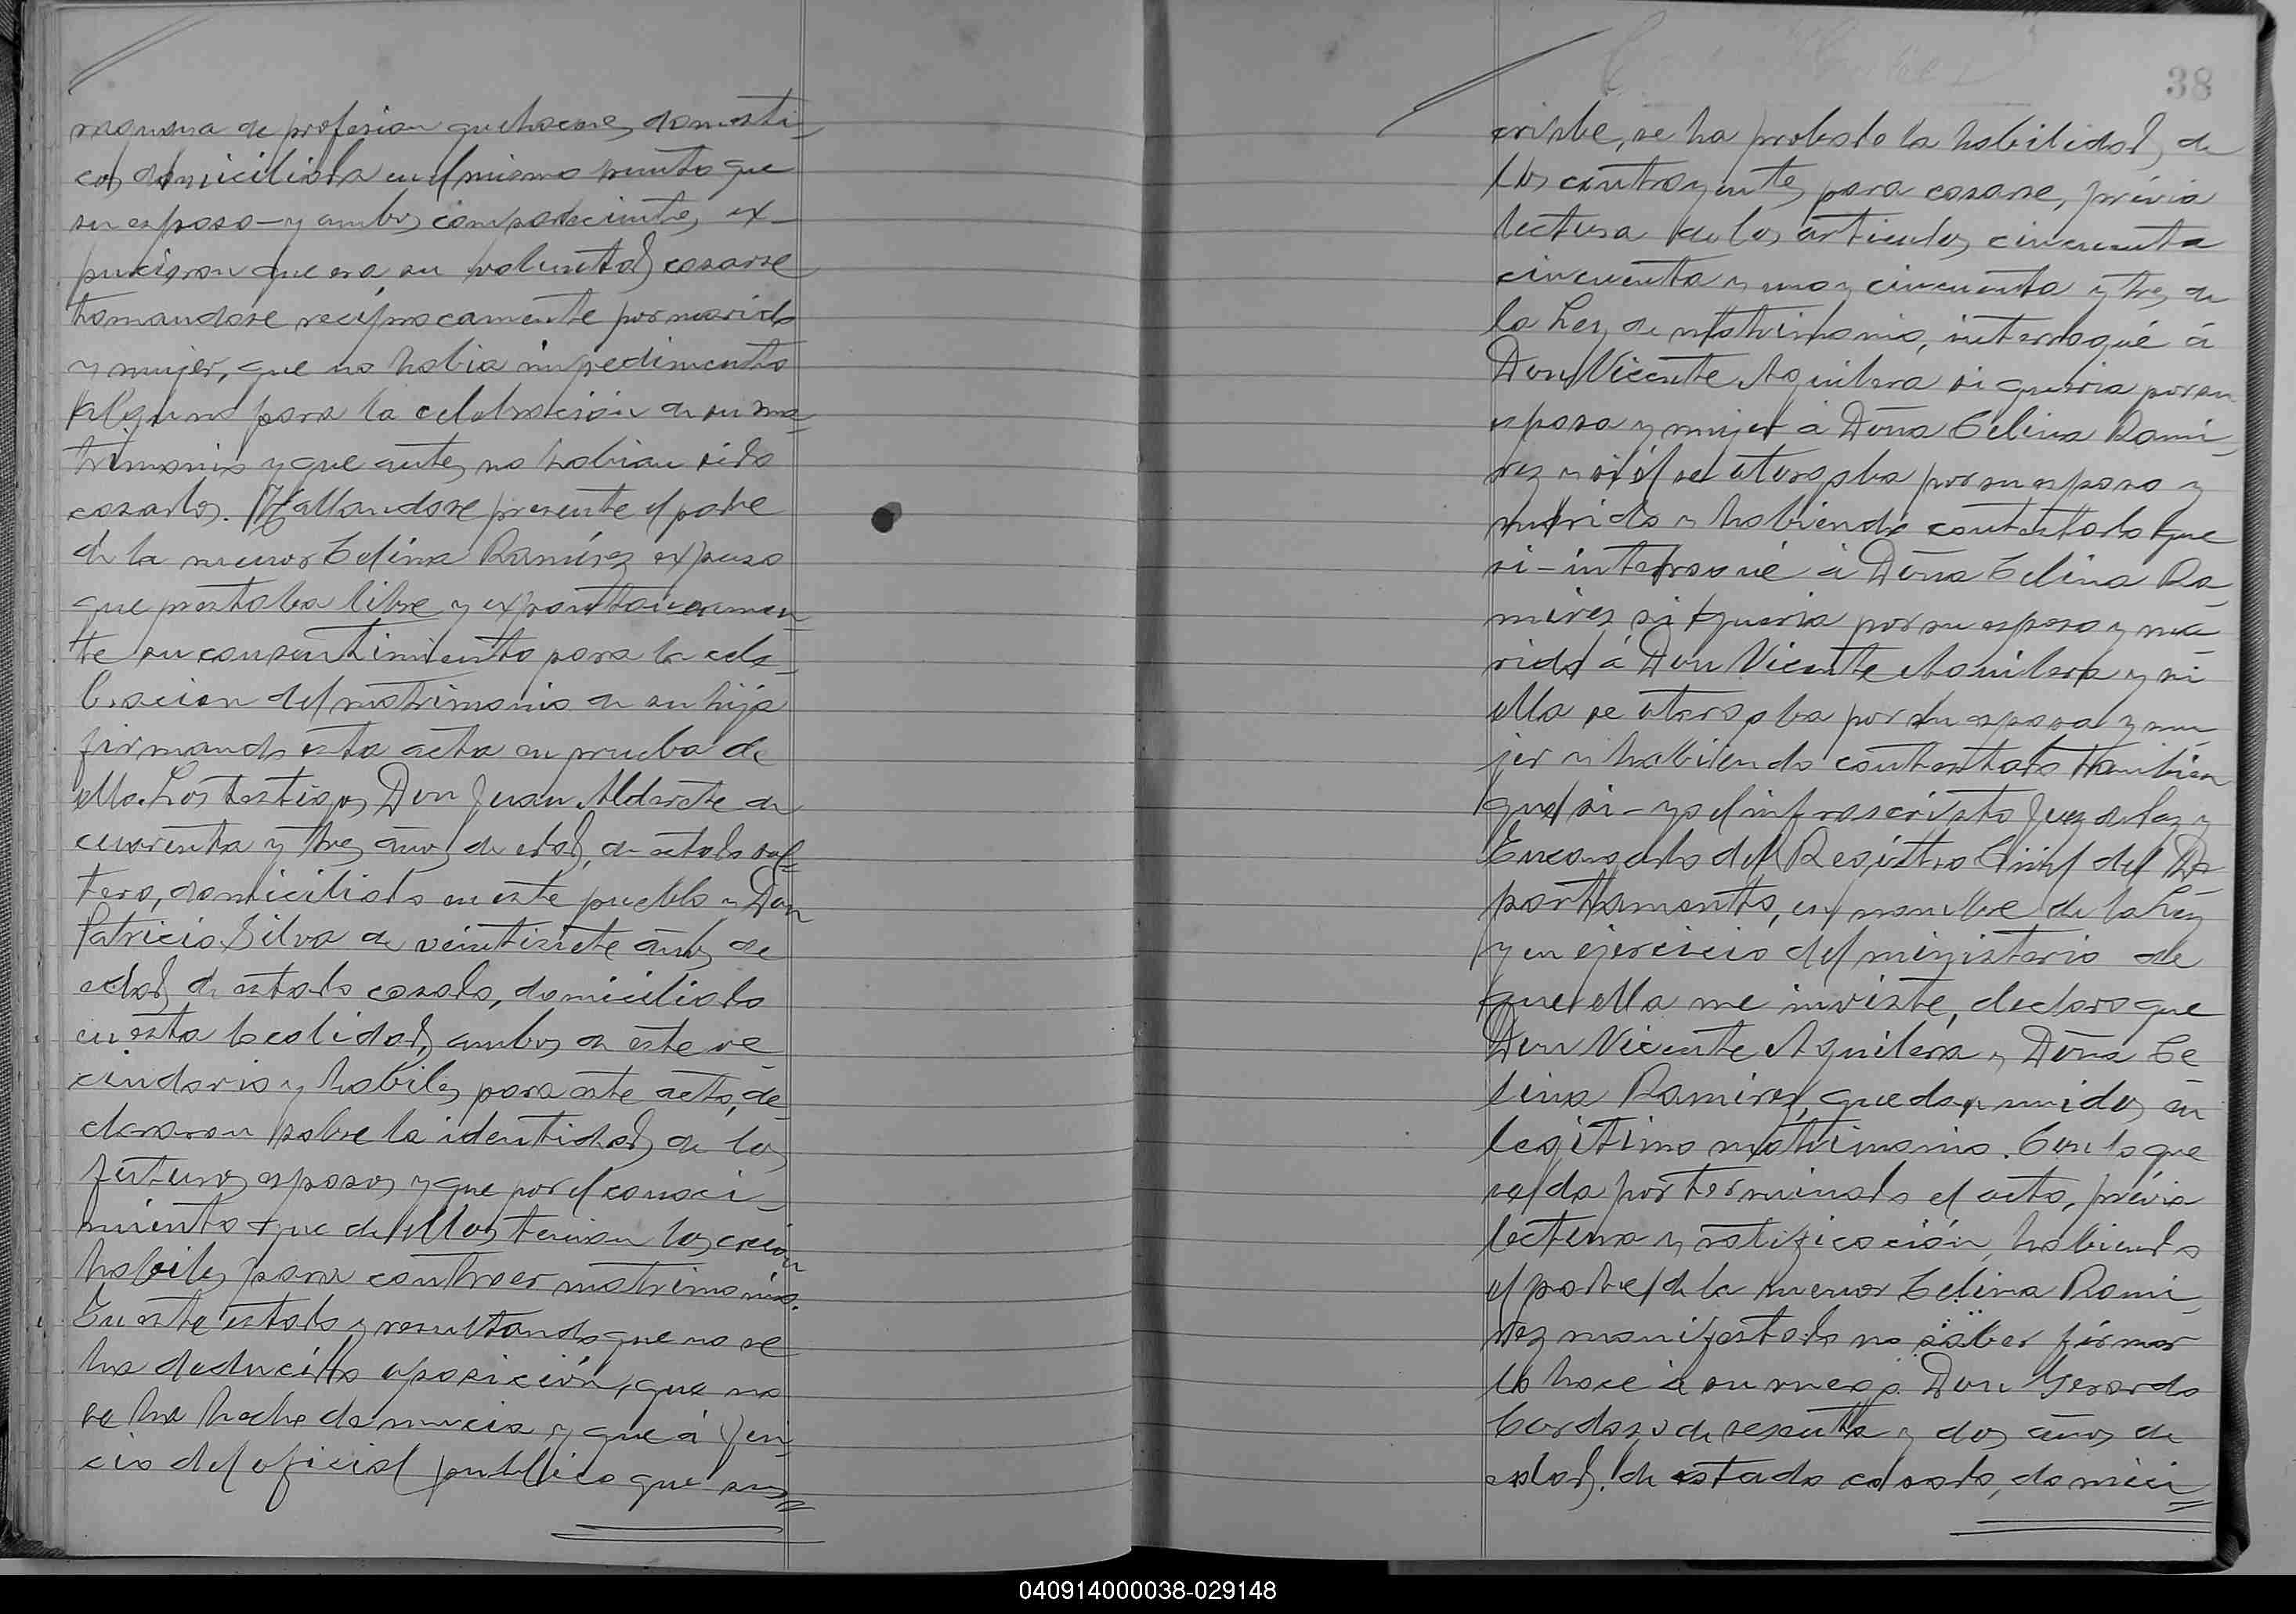 raguaya de profesion quehaceres domesti-
cos domiciliada en el mismo punto que
su esposo - y ambos comparecientes ex-
pucieron que era su voluntad casarse
tomandose reciprocamente por marido
y mujer, que no habia impedimento
alguno para la celebracion de su ma-
trimonio y que antes no habian sido
casados. Hallandose presente el padre
de la menor Celina Ramírez expuso
que prestaba libre y expontaneamen-
te su consentimiento para la cele-
bracion del matrimonio de su hija
firmando esta acta en prueba de
ello. Los testigos Don Juan Alderete de
cuarenta y tres años de edad, de estado sol-
tero, domiciliado en este pueblo y Don
Patricio Silva de veintisiete años de
edad de estado casado, domiciliado
en esta localidad, ambos de este ve-
cindario y habiles para este acto, de-
clararon sobre la identidad de los
futuros esposos y que por el conoci-
miento que de ellos tenian los creian
habiles para contraer matrimonio.
En este estado y resultando que no se
ha deducido oposición, que no
se ha hecho denuncia y que á jui-
cio del oficial publico que sus=
38
cribe, se ha probado la habilidad de
los contrayentes para casarse, prévia
lectura de los articulos cincuenta
cincuenta y uno y cincuenta y tres de
la Ley de matrimonio, interrogué á
Don Vicente Aguilera si queria por su
esposa y mujer á Doña Celina Rami-
rez y si él se otorgaba por su esposo y
marido y habiendo contestado que
si - interrogué á Doña Celina Ra-
mirez si queria por su esposo y ma-
rido á Don Vicente Aguilera y si
ella se otorgaba por su esposa y mu-
jer y habiendo contestado tambien
que si - yo el infrascripto Juez de Paz y
Encargado del Registro Civil del De-
partamento, en nombre de la Ley
y en ejercicio del ministerio de
que ella me inviste, declaro que
Don Vicente Aguilera y Doña Ce-
lina Ramirez, quedan unidos en
legitimo matrimonio. Con lo que
se da por terminado el acto, prévia
lectura y ratificación, habiendo
el padre de la menor Celina Rami-
rez manifestado no saber firmar
lo hace á su ruego Don Gerardo
Cardozo de sesenta y dos años de
edad, de estado casado, domici=
040914000038-029148